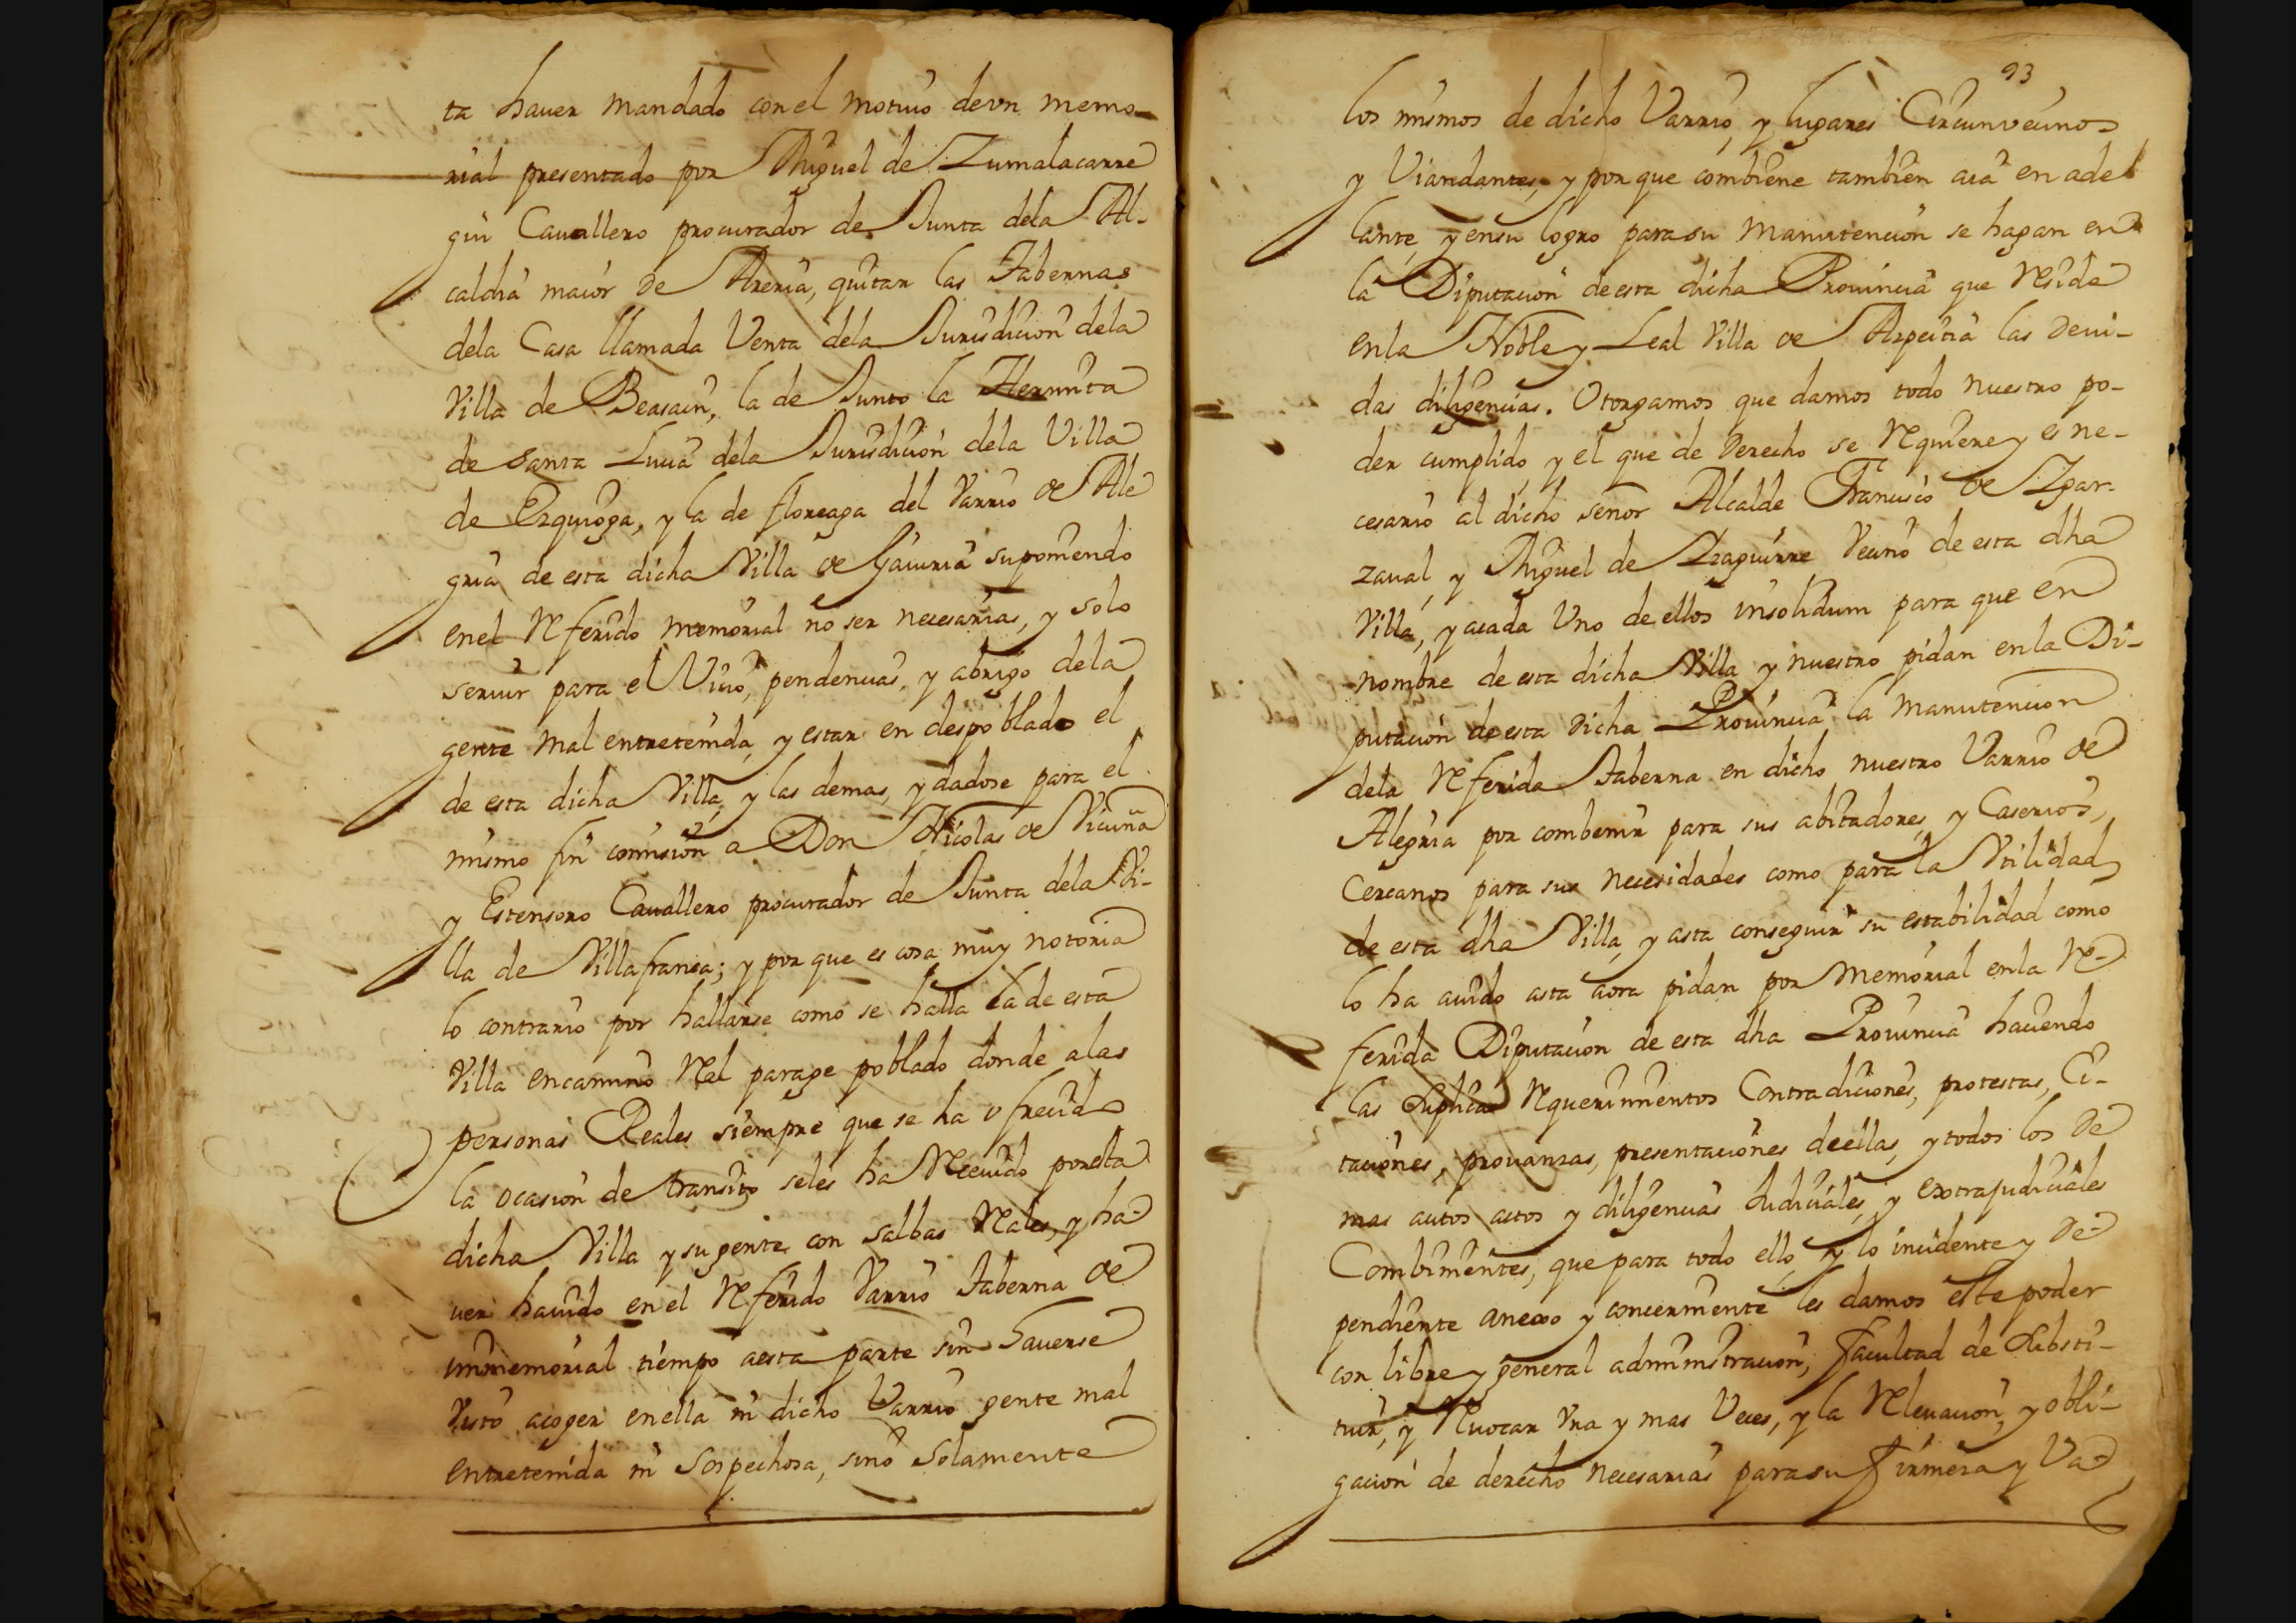 ta hauer mandado con el motiuo de vn memo-
rial presentado por Miguel de Zumalacarre
gui Cauallero procurador de Junta dela Al-
caldia maior de Areria, quitar las Tabernas
dela Casa llamada Venta dela Jurisdicion dela
Villa de Beasain, la de Junto la Hermita
de Santa Lucia dela Jurisdicion dela Villa
de Ezquioga, y la de floreaga del Varrio de Ale
gria de esta dicha Villa de Gauiria suponiendo
en el Referido memorial no ser necesarias, y solo
seruir para el Vicio, pendencias, y abrigo dela
gente mal entretenida, y estar en despoblado el
de esta dicha Villa, y las demas, y dadose para el
mismo fin comision a Don Nicolas de Vicuña
y Estensoro Cauallero procurador de Junta dela Vi-
lla de Villafranca; y por que es cosa muy notoria
lo contrario por hallarse como se halla la de esta
Villa en camino Real parage poblado donde a las
personas Reales siempre que se ha ofrecido
la ocasion de transito seles ha Receuido por esta
dicha Villa y su gente con salbas Reales, y ha-
uer hauido en el Referido Varrio Taberna de
immemorial tiempo a esta parte sin Sauerse
Visto acoger en ella ni dicho Varrio gente mal
entretenida ni Sospechosa, sino Solamente
93
los mismos de dicho Varrio, y lugares Circunvecinos
y Viandantes, y por que combiene tambien acia en ade
lante, y en su logro para su manutencion se hagan en
la Diputacion de esta dicha Prouincia que Reside
en la Noble y Leal Villa de Azpeitia las deui-
das diligencias. Otorgamos que damos todo nuestro po-
der cumplido, y el que de Derecho se Requiere y es ne-
cesario al dicho señor Alcalde Francisco de Igar-
zaual, y Miguel de Izaguirre Vecino de esta dha
Villa, y a cada Uno de ellos insolidum para que en
nombre de esta dicha Villa y nuestro pidan en la Di-
putacion de esta dicha Prouincia la manutencion
dela Referida Taberna en dicho nuestro Varrio de
Alegria por combenir para sus abitadores, y Caserios,
Cercanos para sus necesidades como para la Vtilidad
de esta dha Villa, y asta conseguir su estabilidad como
lo ha auido asta aora pidan por Memorial en la Re-
ferida Diputacion de esta dha Prouincia haciendo
las Suplicas Requerimientos Contradiciones, protestas, Ci-
taciones, prouanzas, presentaciones de ellas, y todos los de
mas autos actos y diligencias Judiciales, y extrajudiciales
Combinientes, que para todo ello, y lo incidente y de-
pendiente anexo y concerniente les damos este poder
con libre y general administracion, facultad de Substi-
tuir, y Reuocar Vna y mas Veces, y la Releuacion, y obli-
gacion de derecho necesarias para su firmeza y Va-